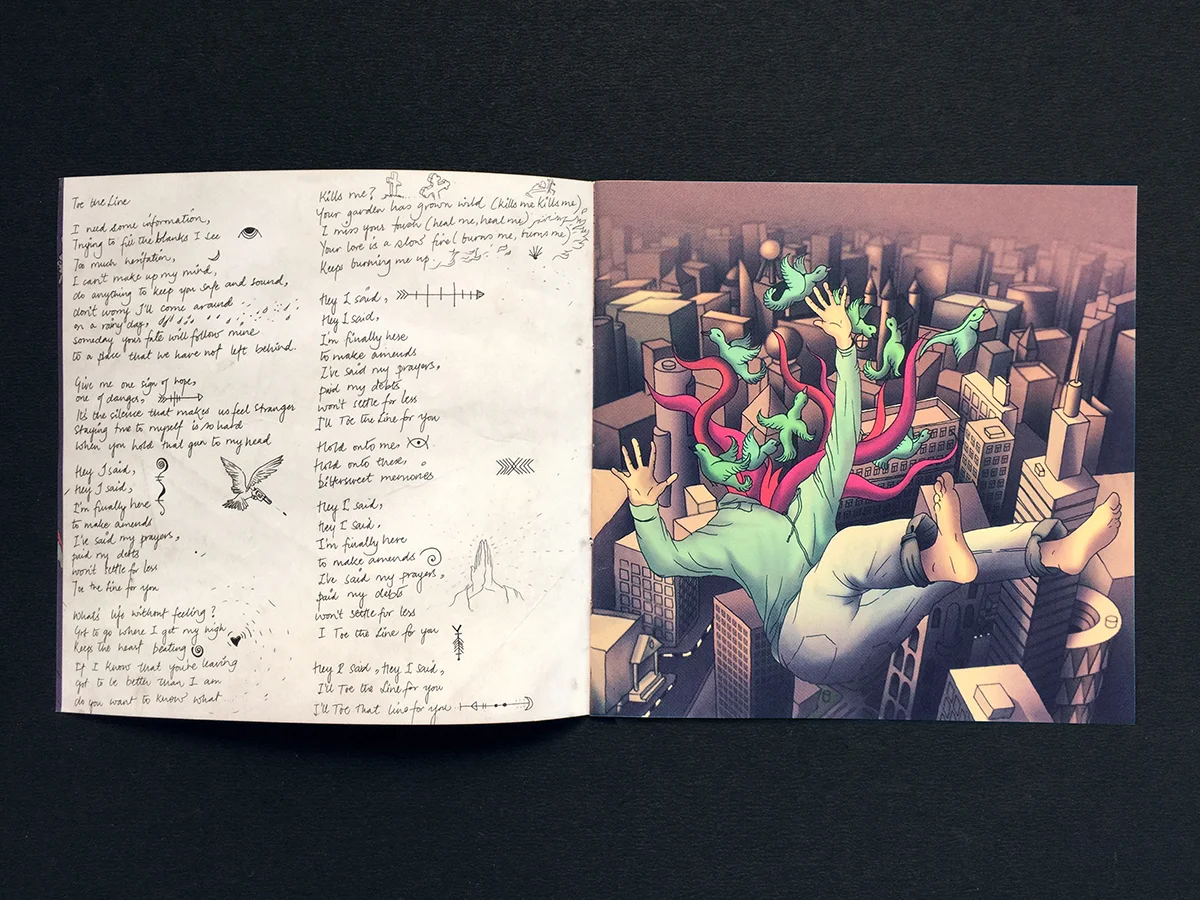 Toe the Line
I need some information,
Trying to fill the blanks I see
Too much hesitation,
I can't make up my mind,
do anything to keep you safe and sound,
don't worry I'll come around
on a rainy day,
someday your fate will follow mine
to a place that we have not left behind.
Give me one sign of hope,
one of danger,
It's the silence that makes us feel stranger
Staying true to myself is so hard
when you hold that gun to my head
Hey I said,
Hey I said,
I'm finally here
to make amends
I've said my prayers,
paid my debts
won't settle for less
Toe the Line for you
What's life without feeling?
Got to go where I get my high
Keeps the heart beating
If I know that you're leaving
got to be better than I am
do you want to know what...
Kills me?
Your garden has grown wild (kills me kills me)
I miss your touch (heal me, heal me)
Your love is a slow fire (burns me, burns me)
Keeps burning me up.
Hey I said,
Hey I said,
I'm finally here
to make amends
I've said my prayers,
paid my debts
won't settle for less
I'll Toe the Line for you
Hold onto me,
Hold onto these,
bittersweet memories
Hey I said,
Hey I said,
I'm finally here
to make amends
I've said my prayers,
paid my debts
won't settle for less
I Toe the Line for you
Hey I said, Hey I said,
I'll Toe the Line for you
I'll Toe that line for you